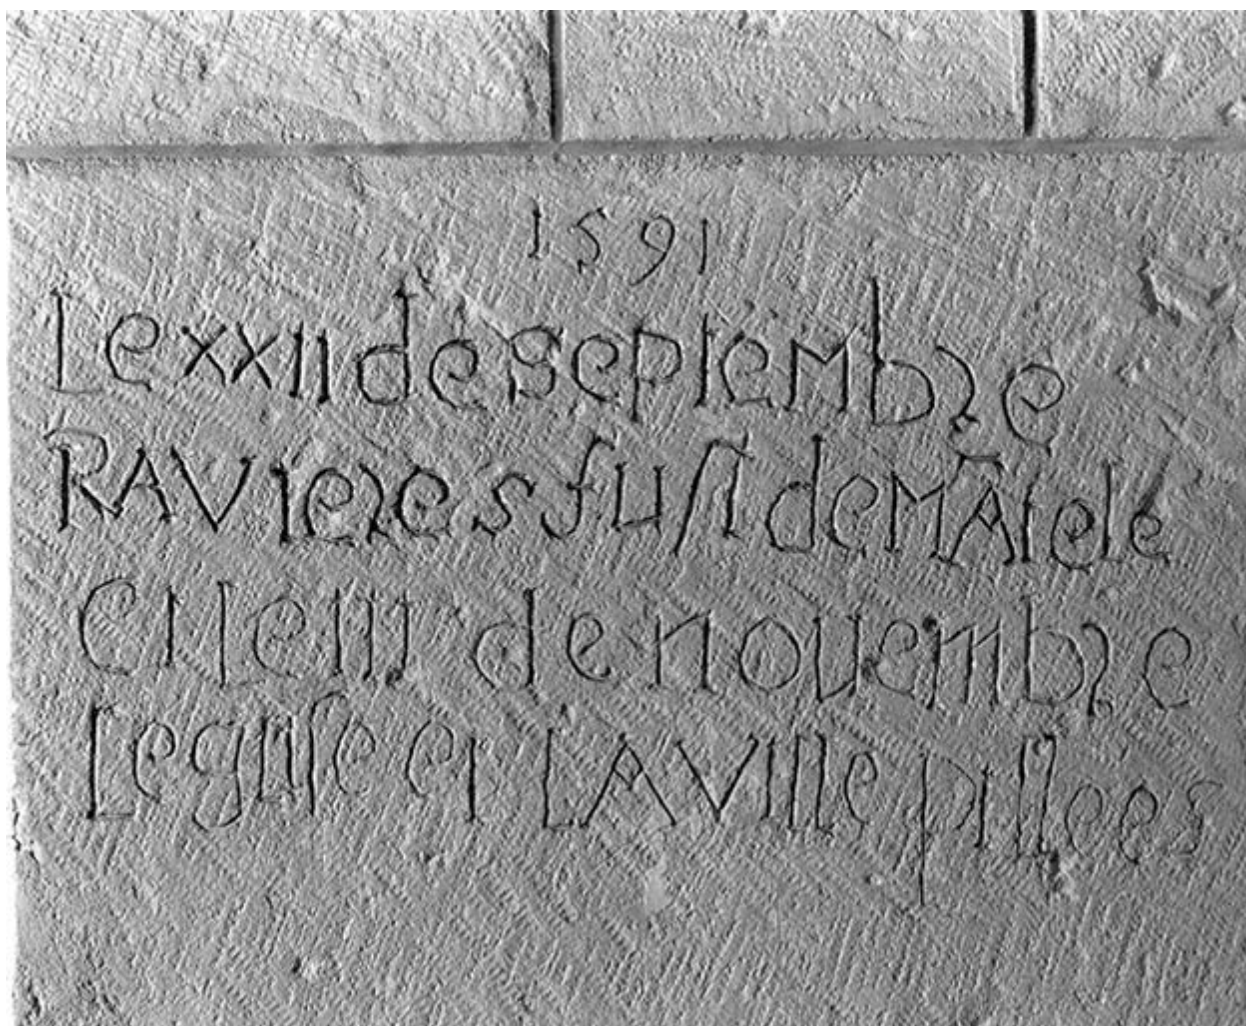 1591
Le xxii de septembre
RAVieres fust deMÃtelé
et le iii de nouembre
Leglise et LA Ville pillees